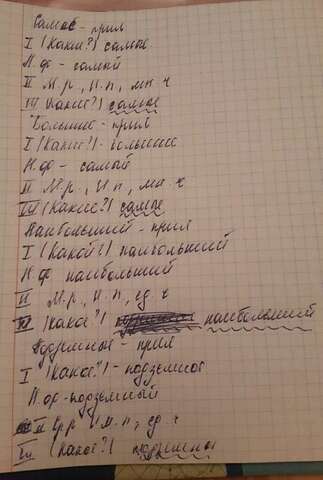 Самое - прил
I (Какие?) самое
Н.ф - самый
II М.р., И.п., мн.ч
III (Какие?) самое
Большие - прил
I (Какие?) - большие
Н.ф - самый
II М.р., И.п, мн.ч
III (Какие?) самое
Наибольший - прил
I (Какой?) наибольший
Н.ф наибольший
II М.р., И.п., ед.ч
III (Какое?) наибольший
Подземное - прил
I (Какое?) - подземное
Н.ф - подземный
II Ср.р И.п., ед.ч
III (Какое?)